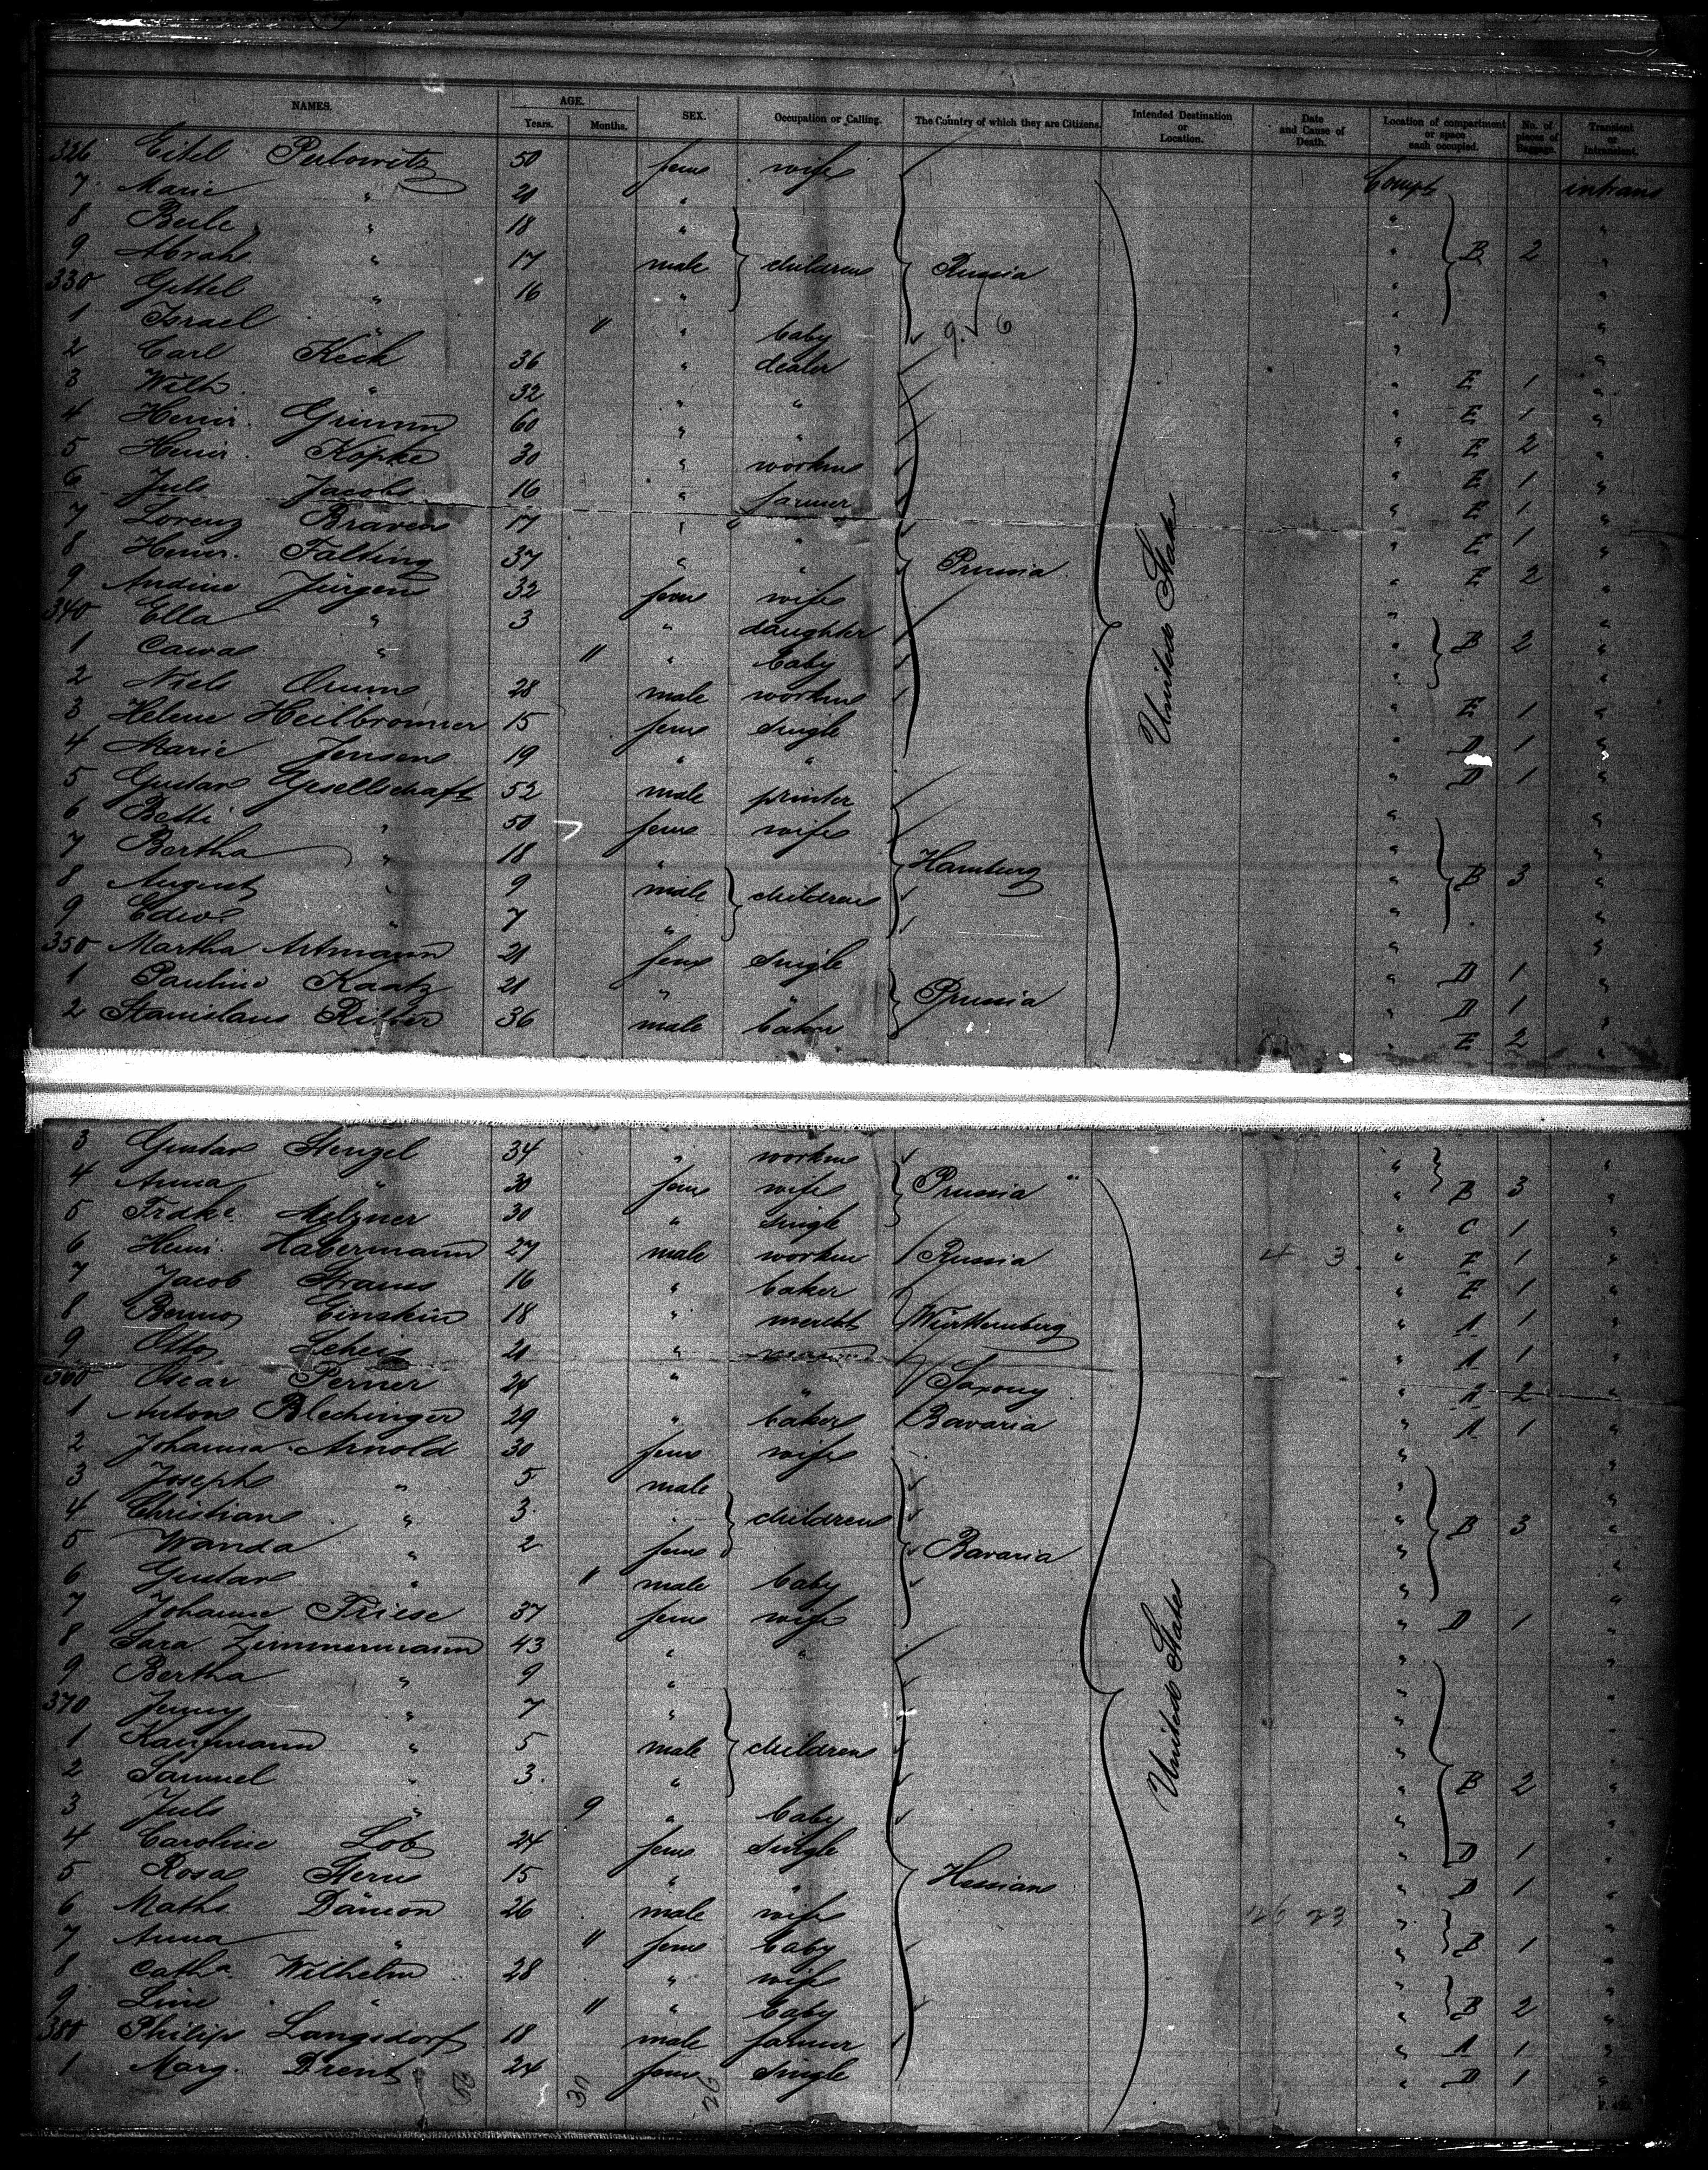 NAMES. AGE. SEX. Occupation or Calling. The Country of which they are Citizens. Intended Destination or Location. Date and Cause of Death. Location of compartment or space each occupied. No. of pieces of Baggage. Transient or Intransient.
Years. Months.
326 Eitel Perlowitz 50 fem wife Compt intrans
7 Marie " 21 " " "
8 Beile " 18 " " "
9 Abrah " 17 male children Russia " B 2 "
330 Gittel " 16 " " "
1 Israel " 11 " baby 9. 6 " "
2 Carl Keck 36 " dealer " E 1 "
3 Wilh. " 32 " " " E 1 "
4 Heinr. Grimm 60 " " " E 2 "
5 Heinr.Köpke 30 " workm " E 1 "
6 Juls Jacobs 16 " farmer " E 1 "
7 Lorenz Braven 17 " " " E 1 "
8 Heinr. Falting 37 " " Prussia " E 2 "
9 Andine Jürgen 32 fem wife " "
340 Ella " 3 " daughter " B 2 "
1 " 11 " baby " "
2 Niels 28 male workm " E 1 "
3 Helene Heilbronner 15 fem single " D 1 "
4 Marie Jensen 19 " " " D 1 "
5 Gustav Gesellschaft 52 male printer " "
6 Betti " 50 fem wife " "
7 Bertha " 18 " Hamburg " B 3 "
8 August " 9 male children " "
9 Edw. " 7 " " "
350 Martha Artmann 21 fem single " D 1 "
1 Pauline Kaatz 21 " " Prussia " D 1 "
2 Stanislaus Ritter 36 male baker " E 2 "
United States
3 Gustav Stengel 34 " workm " "
4 Anna " 30 fem wife Prussia " B 3 "
5 Frdke. Melzner 30 " single " C 1 "
6 Heinr. Habermann 27 male workm Russia 4 3 " E 1 "
7 Jacob Strauss 16 " baker " E 1 "
8 Benno Einstein 18 " mercht Württemberg " A 1 "
9 Otto Scheis 21 " " A 1 "
360 Oscar Perner 24 " " Saxony " A 2 "
1 Anton Blechinger 29 " baker Bavaria " A 1 "
2 Johanna Arnold 30 fem wife " "
3 Joseph " 5 male " "
4 Christian " 3 " children " B 3 "
5 Wanda " 2 fem Bavaria " "
6 Gustav " 11 male baby " "
7 Johanne Friese 37 fem wife " D 1 "
8 Sara Zimmermann 43 " " " "
9 Bertha " 9 " " "
370 Jenny " 7 " " "
1 Kaufmann " 5 male children " "
2 Samuel " 3 " " B 2 "
3 Juls " 9 " baby " "
4 Caroline Lob 24 fem single " D 1 "
5 Rosa Stern 15 " " Hessian " D 1 "
6 Maths. Dämon 26 male wife 26 23 " "
7 Anna " 11 fem baby " B 1 "
8 Catha. Wilhelm 28 " wife " "
9 Line " 11 " baby " B 2 "
380 Philipp Langsdorf 18 male farmer " A 1 "
1 Marg. Drent 24 fem single " D 1 "
United States
56 30 26